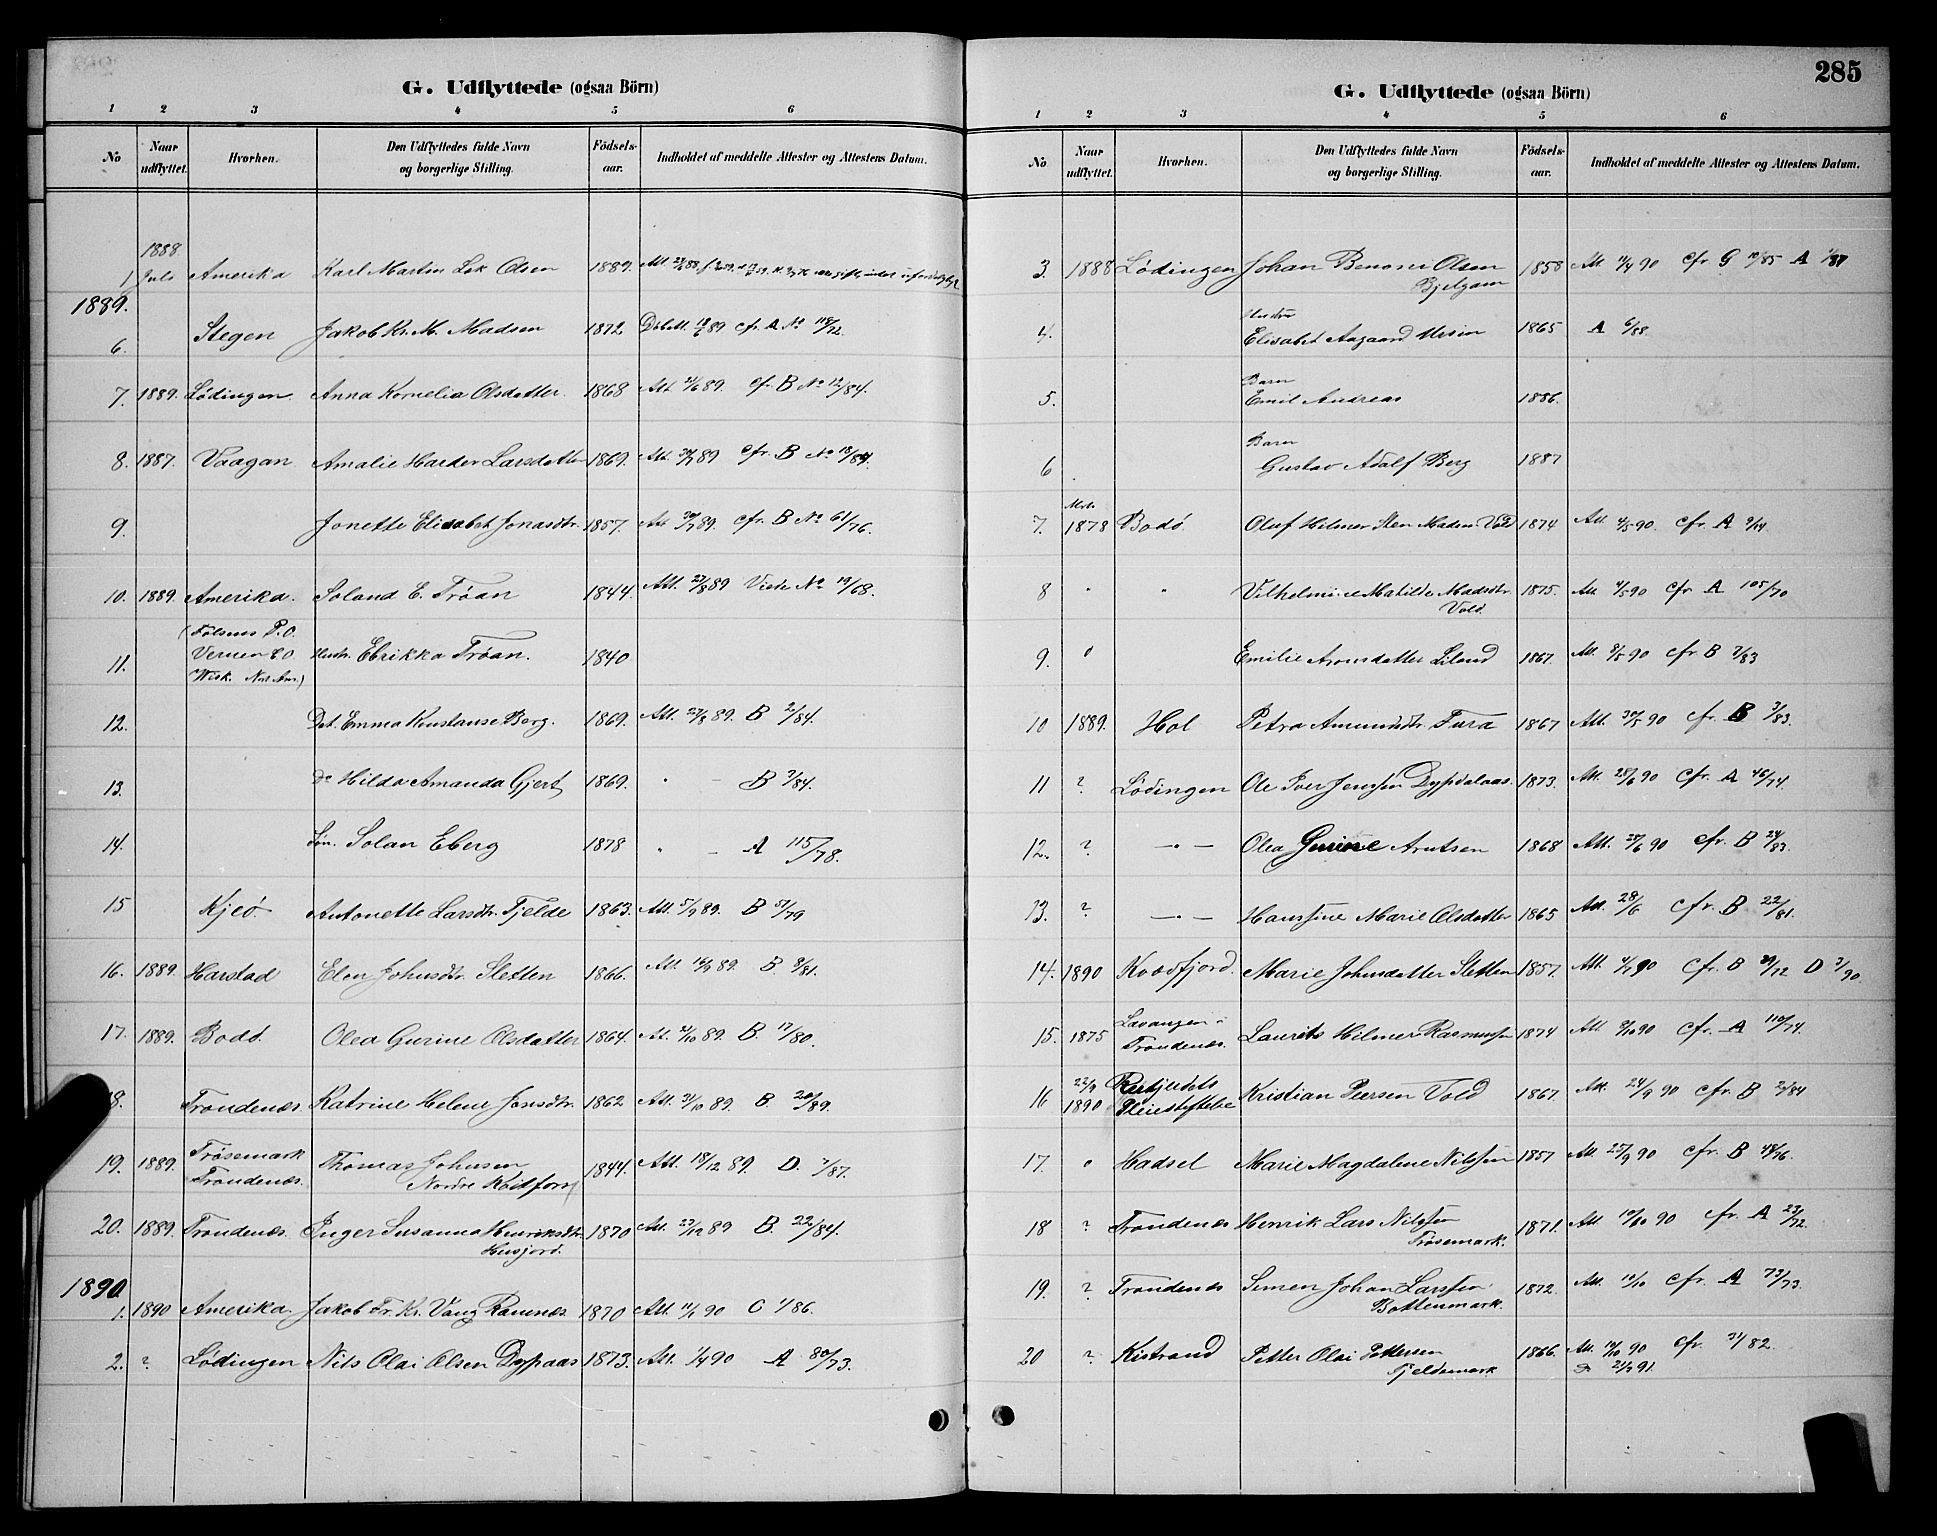 285
G. Udflyttede (ogsaa Börn)
1 2 3 4 5 6
No Naar udflyttet. Hvorhen. Den Udflyttedes fulde Navn og borgerlige Stilling. Födsels-aar. Indholdet af meddelte Attester og Attestens Datum.
1 1888 Juls Amerika Karl Martin Olsen 1889.
1889.
6. Stegen Jakob Kr. M. Madsen 1872 cfr. A No 118/72.
7. 1889. Lødingen Anna Kornelia Olsdatter. 1868 Att 21/6 89. cf. B No 12/84.
8. 1887. Vaagan Amalie Harder Larsdatter 1869. Att. 30/7 89 cfr. B No 18/84.
9. Jonette Elisabet Jonasdtr. 1857. Att 30/7 89. cfr. B No 61/76.
10. 1889. Amerika. Soland E. Trøan 1844. Att. 27/8 89 Viede No 19/68.
11. (Folsens P.O. Vernen C.O. Wisk. Nor Am.) Hustr. Ebrikka Trøan. 1840
12. Dat. Emma Konstanse Berg. 1869. Att. 27/8 89. B 2/84.
13. Do Hilda Amanda Gjert 1869. " — B 3/84.
14. Søn. Solan Eberg 1878 " — A 115/78.
15 Kjeø. Antonette Larsdtr. Fjelde 1863. Att. 5/9 89. B 51/79
16. 1889. Harstad Elen Johnsdtr. Sletten 1866. Att. 14/9 89. B. 8/81.
17. 1889. Bodø. Olea Gurine Olsdatter 1864. At. 2/10 89. B. 17/80.
18. Trondenæs Katrine Helene Jonsdtr. 1862 Att. 31/10 89. B. 20/89.
19. 1889. Trøsemark Trondenæs. Thomas Johnsen Nordre Kodfjord 1844. Att. 18/12 89. D. 7/87.
20. 1889. Trondenæs. Inger Susanna Henriksdtr. Husjord. 1870 Att. 23/12 89 B. 22/84.
1890
1. 1890 Amerika. Jakob Fr. Kr. Vang Ranenæs 1870 Att. 11/1 90 C 1/86.
2. ? Lødingen Nils Olai Olsen Dypaas 1873. Att. 1/4 90 A 80/73.
G. Udflyttede (ogsaa Börn)
1 2 3 4 5 6
No Naar udflyttet. Hvorhen. Den Udflyttedes fulde Navn og borgerlige Stilling. Födsels-aar. Indholdet af meddelte Attester og Attestens Datum.
3. 1888 Lødingen Johan Benoni Olsen 1858 Att. 11/4 90 cfr G 19/85 A 1/87
4. Hustru Elisabet Aagaard Ursin 1865 A 6/88.
5. Barn Emil Andreas 1886.
6 Barn Gustav Adolf Berg 1887
7. 1878 Bodø. Oluf Hilmer Sten Madsen Vold 1874 Att. 4/5 90. cfr. A 9/74.
8 " " Vilhelmine Matilde Madsdtr. Vold. 1875. Att 4/5 90 cfr. A 105/70
9. " Emilie Aronsdatter Liland 1867. Att. 8/5 90 cfr. B 7/83
10 1889. Hol Petra Amundsdtr. Tura 1867 Att. 30/5 90 cfr. B 3/83.
11 ? Lødingen Ole Iver Jenssen Dypdalaas. 1873. Att. 28/6 90 cfr. A 46/74.
12. ? — " — Olea Gurine Arntsen 1868 Att. 28/6 90 cfr. B 24/83.
13. ? — " — Hanssine Marie Olsdatter 1865 Att. 28/6 cfr. B 22/81.
14. 1890 Kvædfjord. Marie Johnsdatter Sletten 1857. Att. 4/7 90 cfr. B 29/72 D 2/90
15. 1875 Lavangen i Trondenæs. Laurits Hilmer Rasmussen 1874 Att. 9/10 90 cfr. A 110/74.
16 22/9 1890 Pleiestiftelse Kristian Peersen Vold 1867. Att. 24/9 90 cfr. B 2/84
17. " Hadsel Marie Magdalene Nilssen 1857 Att. 25/9 90 cfr. B 48/76.
18 ? Trondenæs Henrik Lars Nilssen Trøsemark. 1871. Att 10/10 90 cfr. A 23/72.
19. ? Trondenæs Simen Johan Larssen Bottenmark. 1872. Att. 10/10 cfr. A 73/73.
20 ? Kistrand Petter Olai Pettersen Fjeldsmark 1866. Att. 14/10 90 cfr. 31/82.
21/2 91